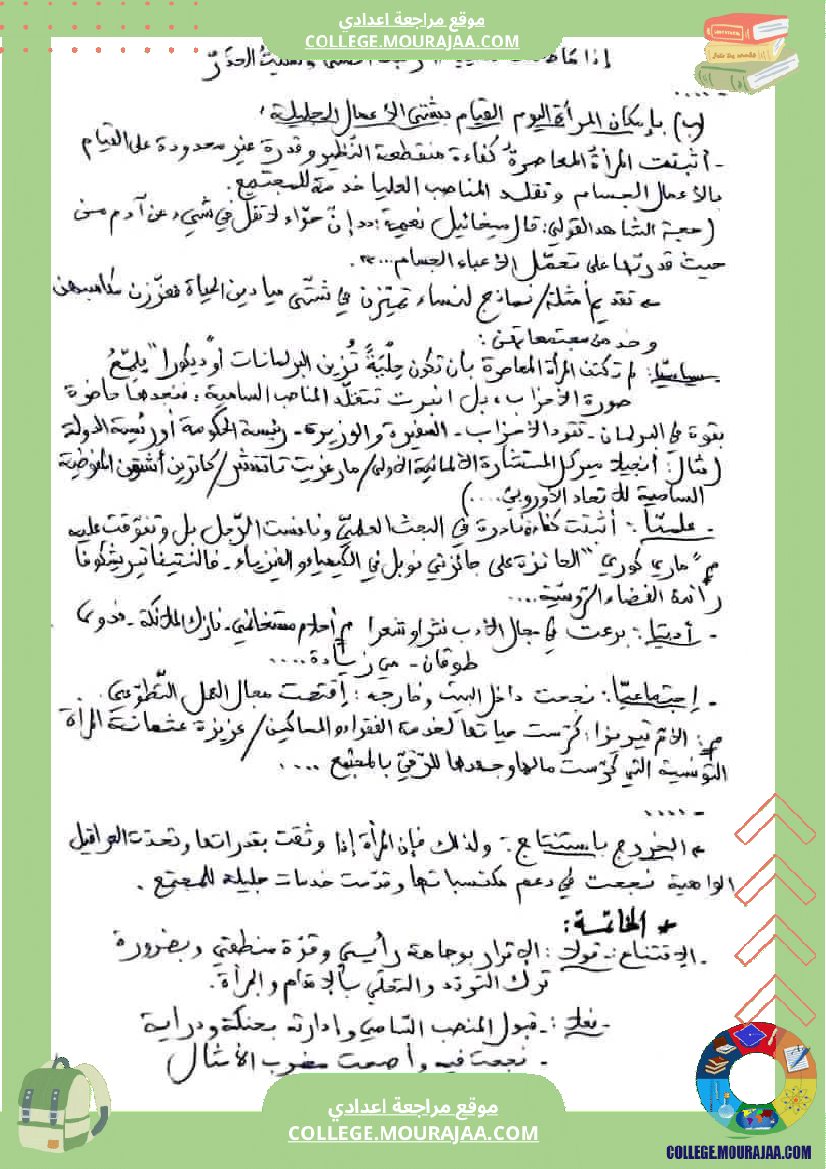 موقع مراجعة اعدادي
COLLEGE.MOURAJAA.COM
إذا
.....
(ب) بإمكان المرأة اليوم القيام بشتى الأعمال الجليلة:
- أثبتت المرأة المعاصرة كفاءة منقطعة النظير وقدرة غير محدودة على القيام
بالأعمال الجسام وتقلد المناصب العليا خدمة للمجتمع.
(حجة الشاهد القولي: قال ميخائيل نعيمة: "إنّ حوّاء لا تقل في شيء عن آدم من
حيث قدرتها على تحمّل الأعباء الجسام...".
تقديم أمثلة/نماذج لنساء تميّزن في شتّى ميادين الحياة فعزّزن مكاسبهن
وخدمن مجتمعاتهنّ:
سياسيّا: لم تكتف المرأة المعاصرة بأن تكون حِلْيَةً تُزين البرلمانات أو "ديكورا" يلمّعُ
صورة الأحزاب، بل انبرت تتقلّد المناصب السامية: فنجدها حاضرة
بقوة في البرلمان - تقود الأحزاب - السفيرة والوزيرة - رئيسة الحكومة أو رئيسة الدولة
(مثال: أنجيلا ميركل المستشارة الألمانية الأولى/ مارغريت تاتشر/ كاترين أشتون المفوضية
السامية للاتحاد الأوروبي....)
- علميّا: أثبتت كفاءة نادرة في البحث العلميّ ونافست الرّجل بل وتفوّقت عليه
م "ماري كوري" الحائزة على جائزتي نوبل في الكيمياء والفيزياء - فالنتينا تيريشكوفا
رائدة الفضاء الروسيّة....
- أدبيّا: برعت في مجال الأدب نثرا وشعرا م أحلام مستغانمي - نازك الملائكة - فدوى
طوقان - مي زيادة....
- اجتماعيّا: نجحت داخل البيت وخارجه: اقتحمت مجال العمل التّطوّعي
م: الأم تيريزا: كرّست حياتها لخدمة الفقراء والمساكين/ عزيزة عثمانة المرأة
التونسية التي كرّست مالها وجهدها للرّقيّ بالمجتمع ....
- ....
* الخروج باستنتاج: ولذلك فإن المرأة إذا وثقت بقدراتها وتحدّت العراقيل
الواهية نجحت في دعم مكتسباتها وقدّمت خدمات جليلة للمجتمع.
* الخاتمة:
- الاقتناع: قولا: الإقرار بوجاهة رأيي وقوّة منطقي وبضرورة
ترك التردّد والتحلّي بالإقدام والجرأة.
- فعلا: - قبول المنصب السّامي وإدارته بحنكة ودراية
- نجحت فيه وأصبحت مضرب الأمثال
موقع مراجعة اعدادي
COLLEGE.MOURAJAA.COM
COLLEGE.MOURAJAA.COM